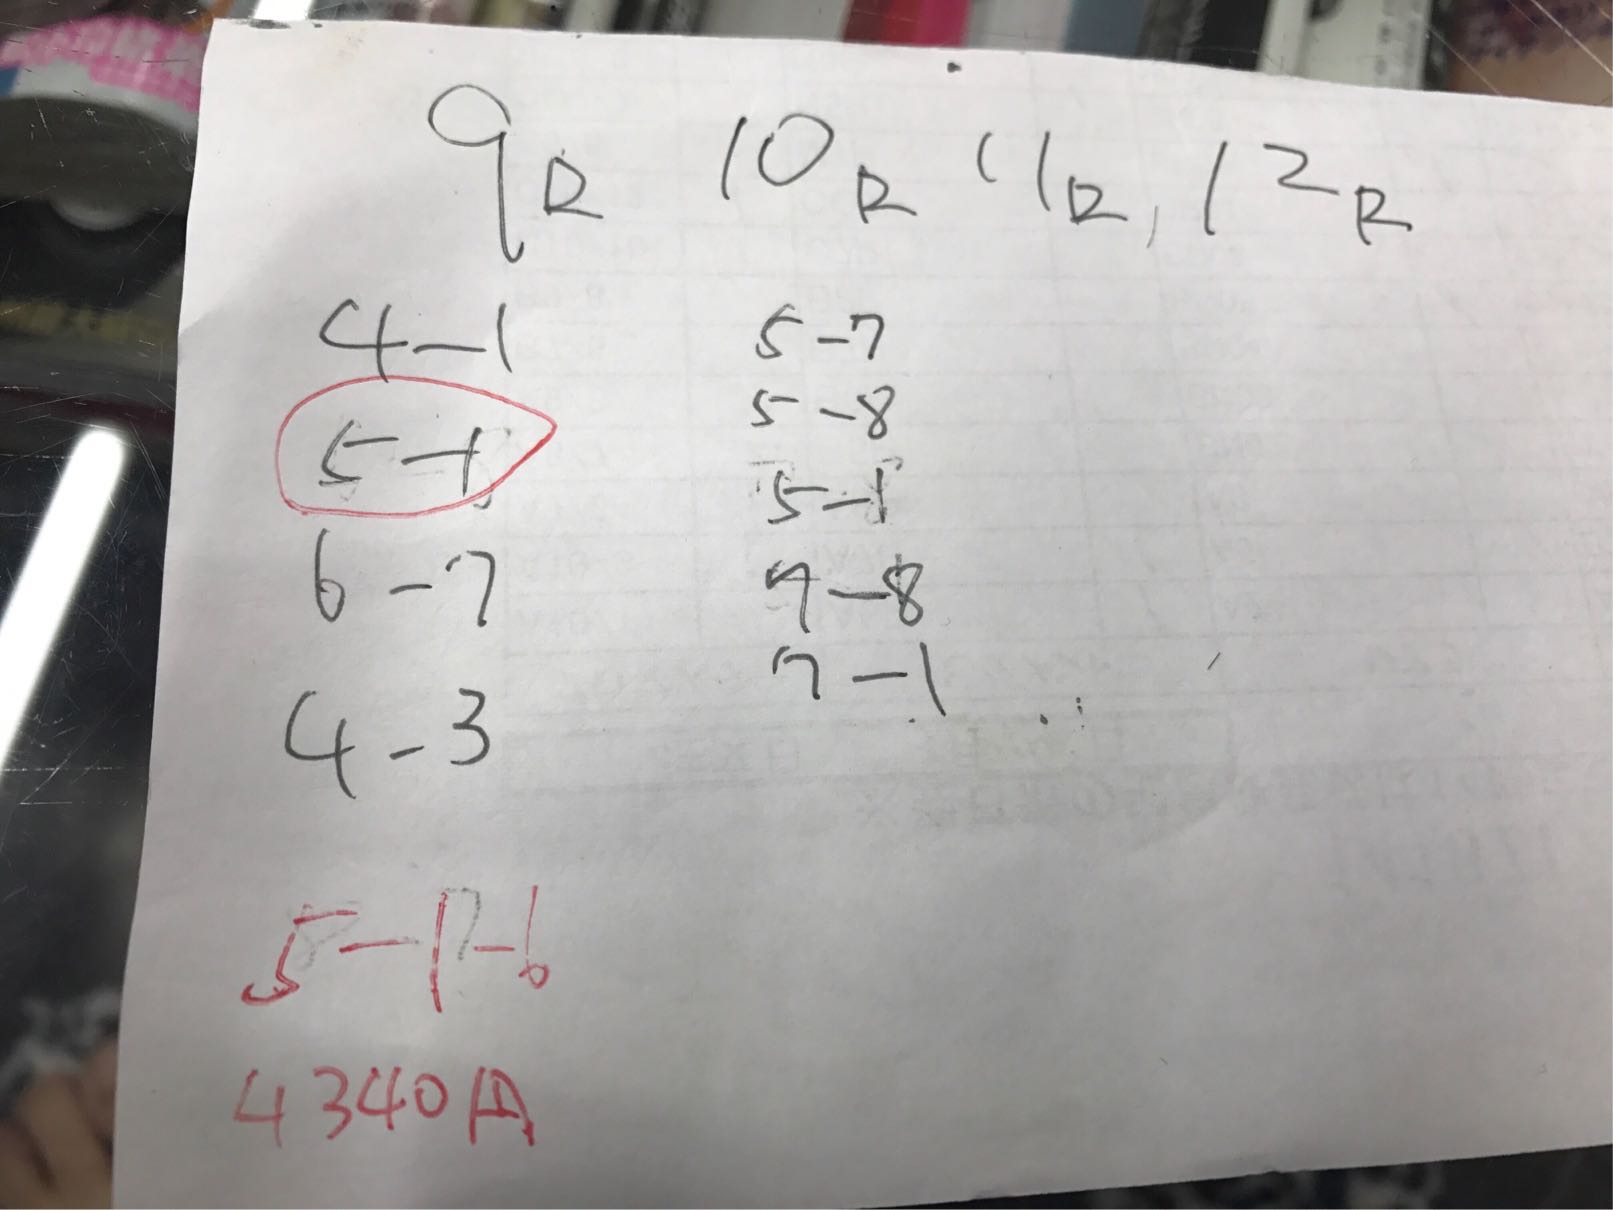 9R 10R 11R, 12R
4-1
5-1
6-7
4-3
5-7
5-8
5-1
7-8
7-1
5-1-6
4340円